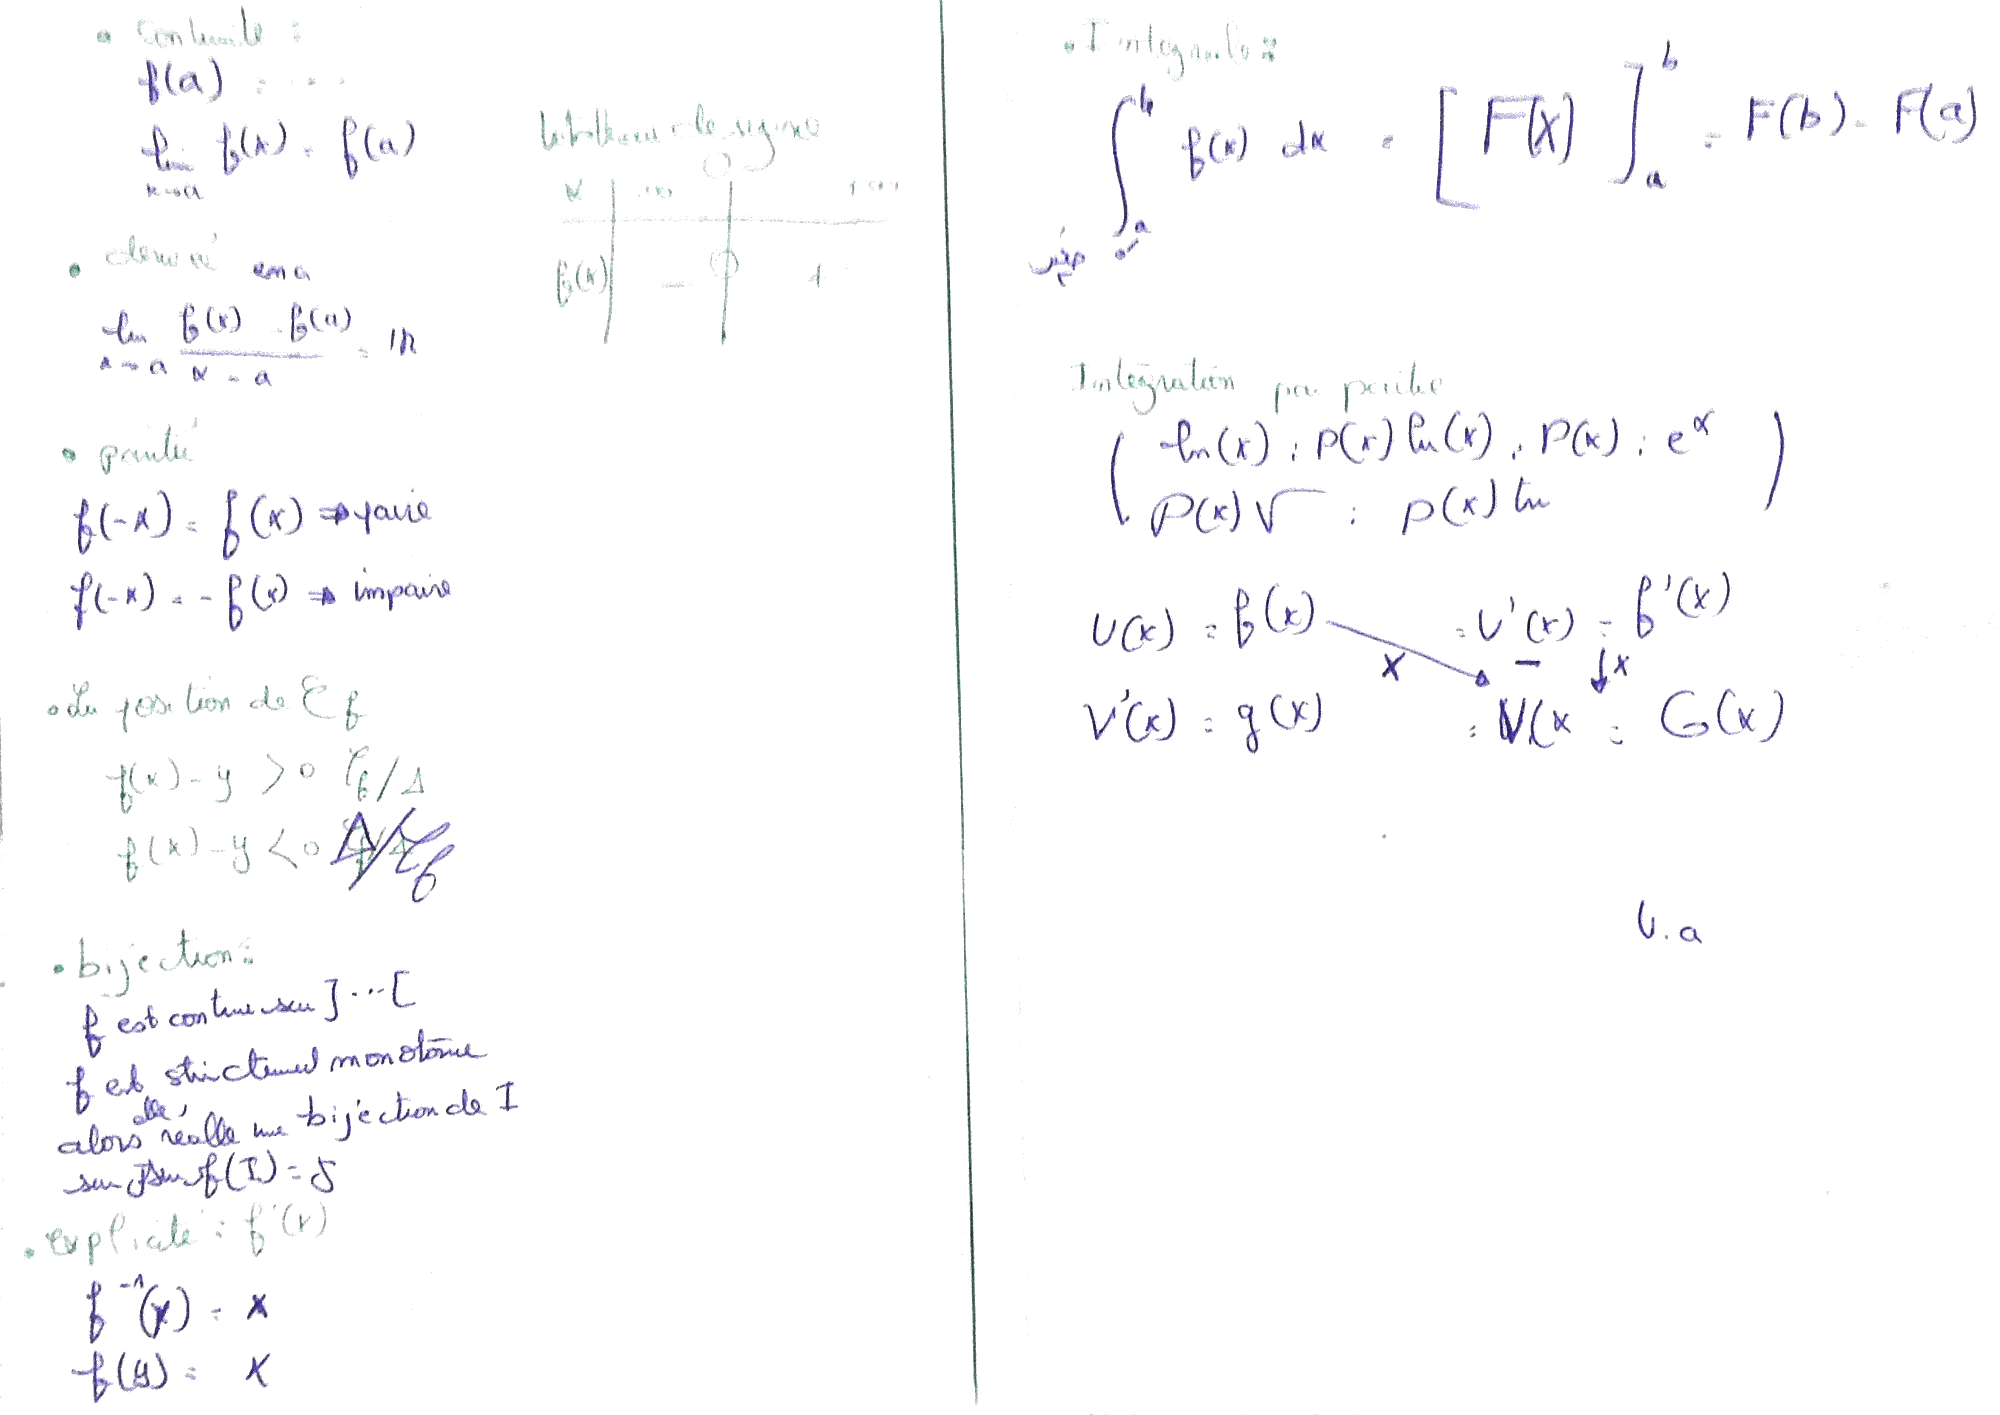 • Continuité :
f(a) = ...
lim f(x) = f(a)
x→a
• dérivé en a
lim f(x) - f(a) = IR
x→a x - a
• parité
f(-x) = f(x) ⇒ paire
f(-x) = - f(x) ⇒ impaire
• La position de Cf
f(x) - y > 0 Cf/Δ
f(x) - y < 0 Δ/Cf
• bijection :
f est continue sur ]...[
f est strictement monotone
alors elle réalise une bijection de I
sur J sur f(I) = J
• explicité : f'(x)
f⁻¹(x) = x
f(y) = x
le tableau de signe
x -∞ +∞
f(x) - 0 +
• Integrale :
∫ₐᵇ f(x) dx = [F(x)]ₐᵇ = F(b) - F(a)
Intégration par partie
( ln(x) ; P(x) ln(x) ; P(x) ; eˣ
P(x) √ ; p(x) ln )
U(x) = f(x) = U'(x) = f'(x)
x x
V'(x) = g(x) = V(x = G(x)
U.a